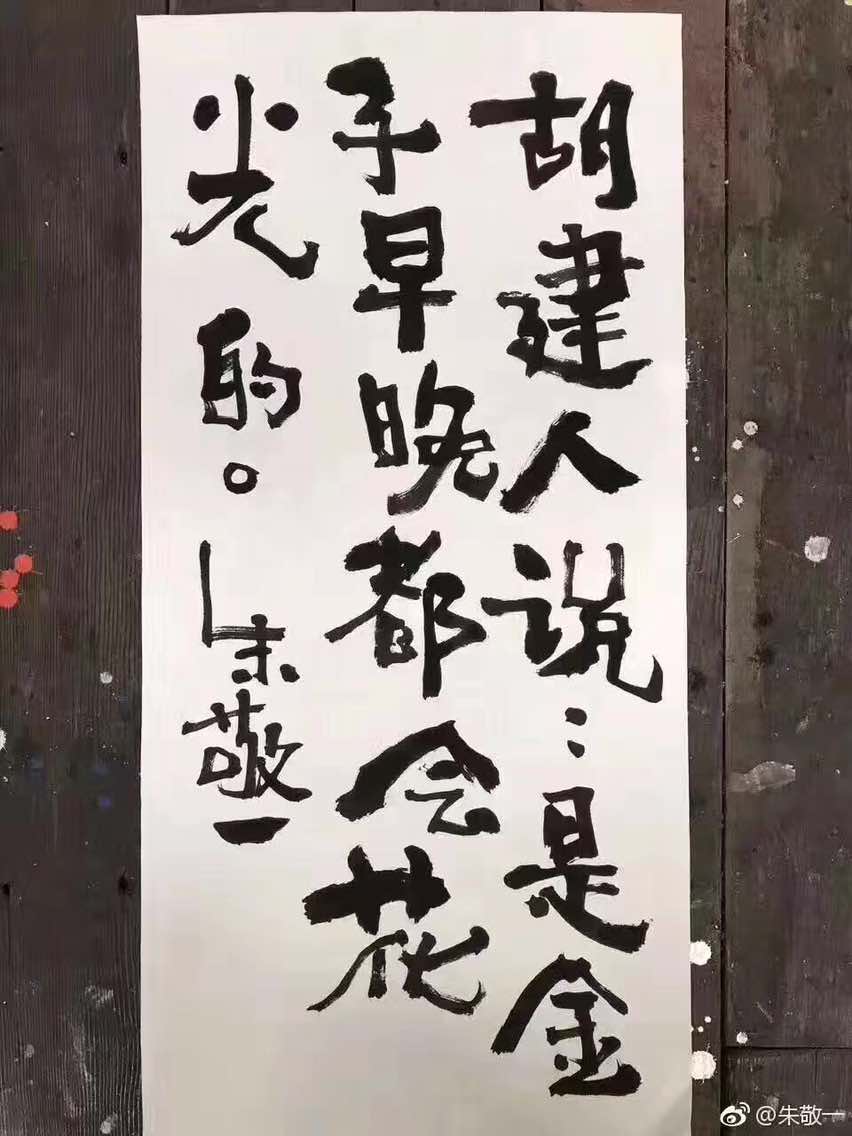 胡建人说：是金
子早晚都会花
光的。
朱敬一
@朱敬一